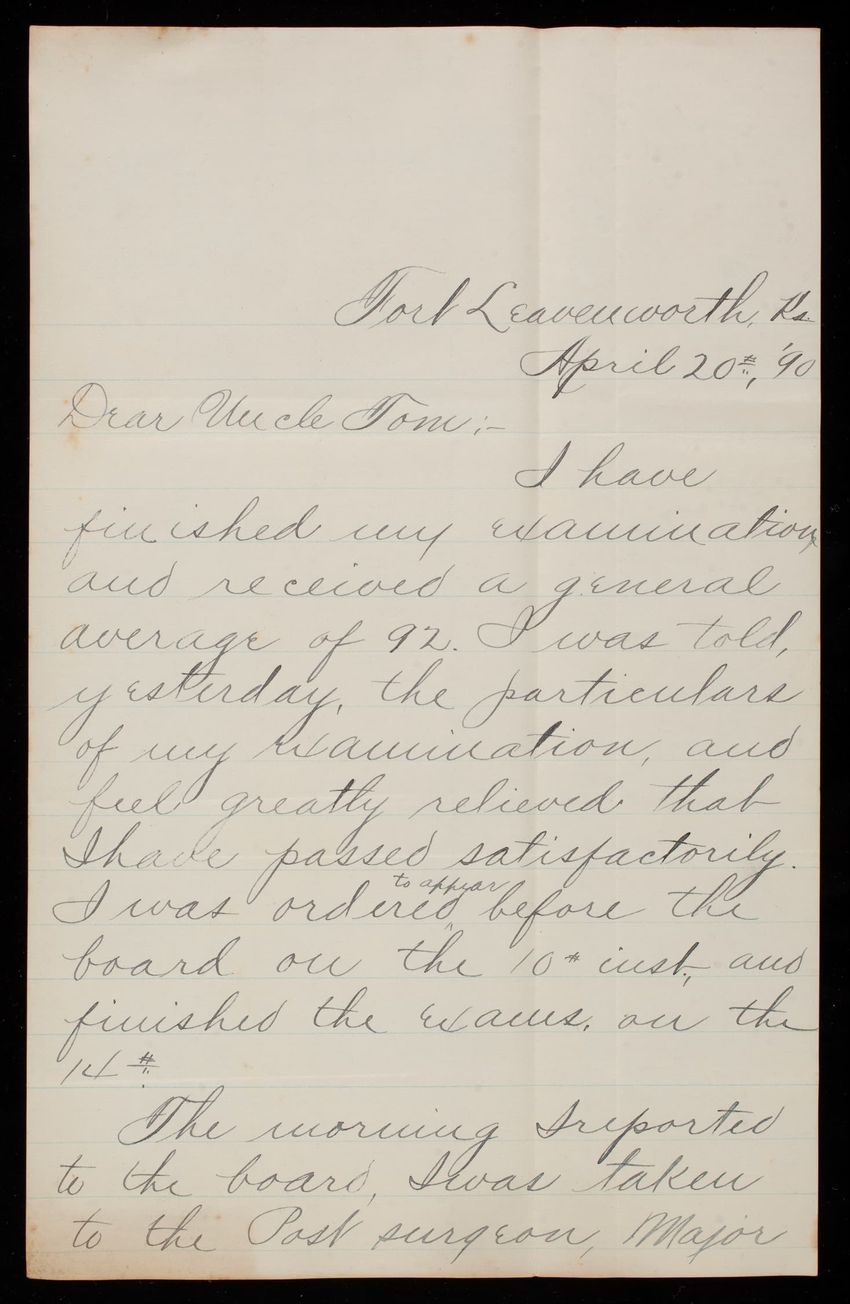 Fort Leavenworth, Ks.
April 20th, '90
Dear Uncle Tom:-
I have
finished my examination,
and received a general
average of 92. I was told,
yesterday, the particulars
of my examination, and
feel greatly relieved that
I have passed satisfactorily.
to appear
I was ordered before the
board on the 10th inst., and
finished the exams. on the
14th.
The morning I reported
to the board, I was taken
to the Post surgeon, Major